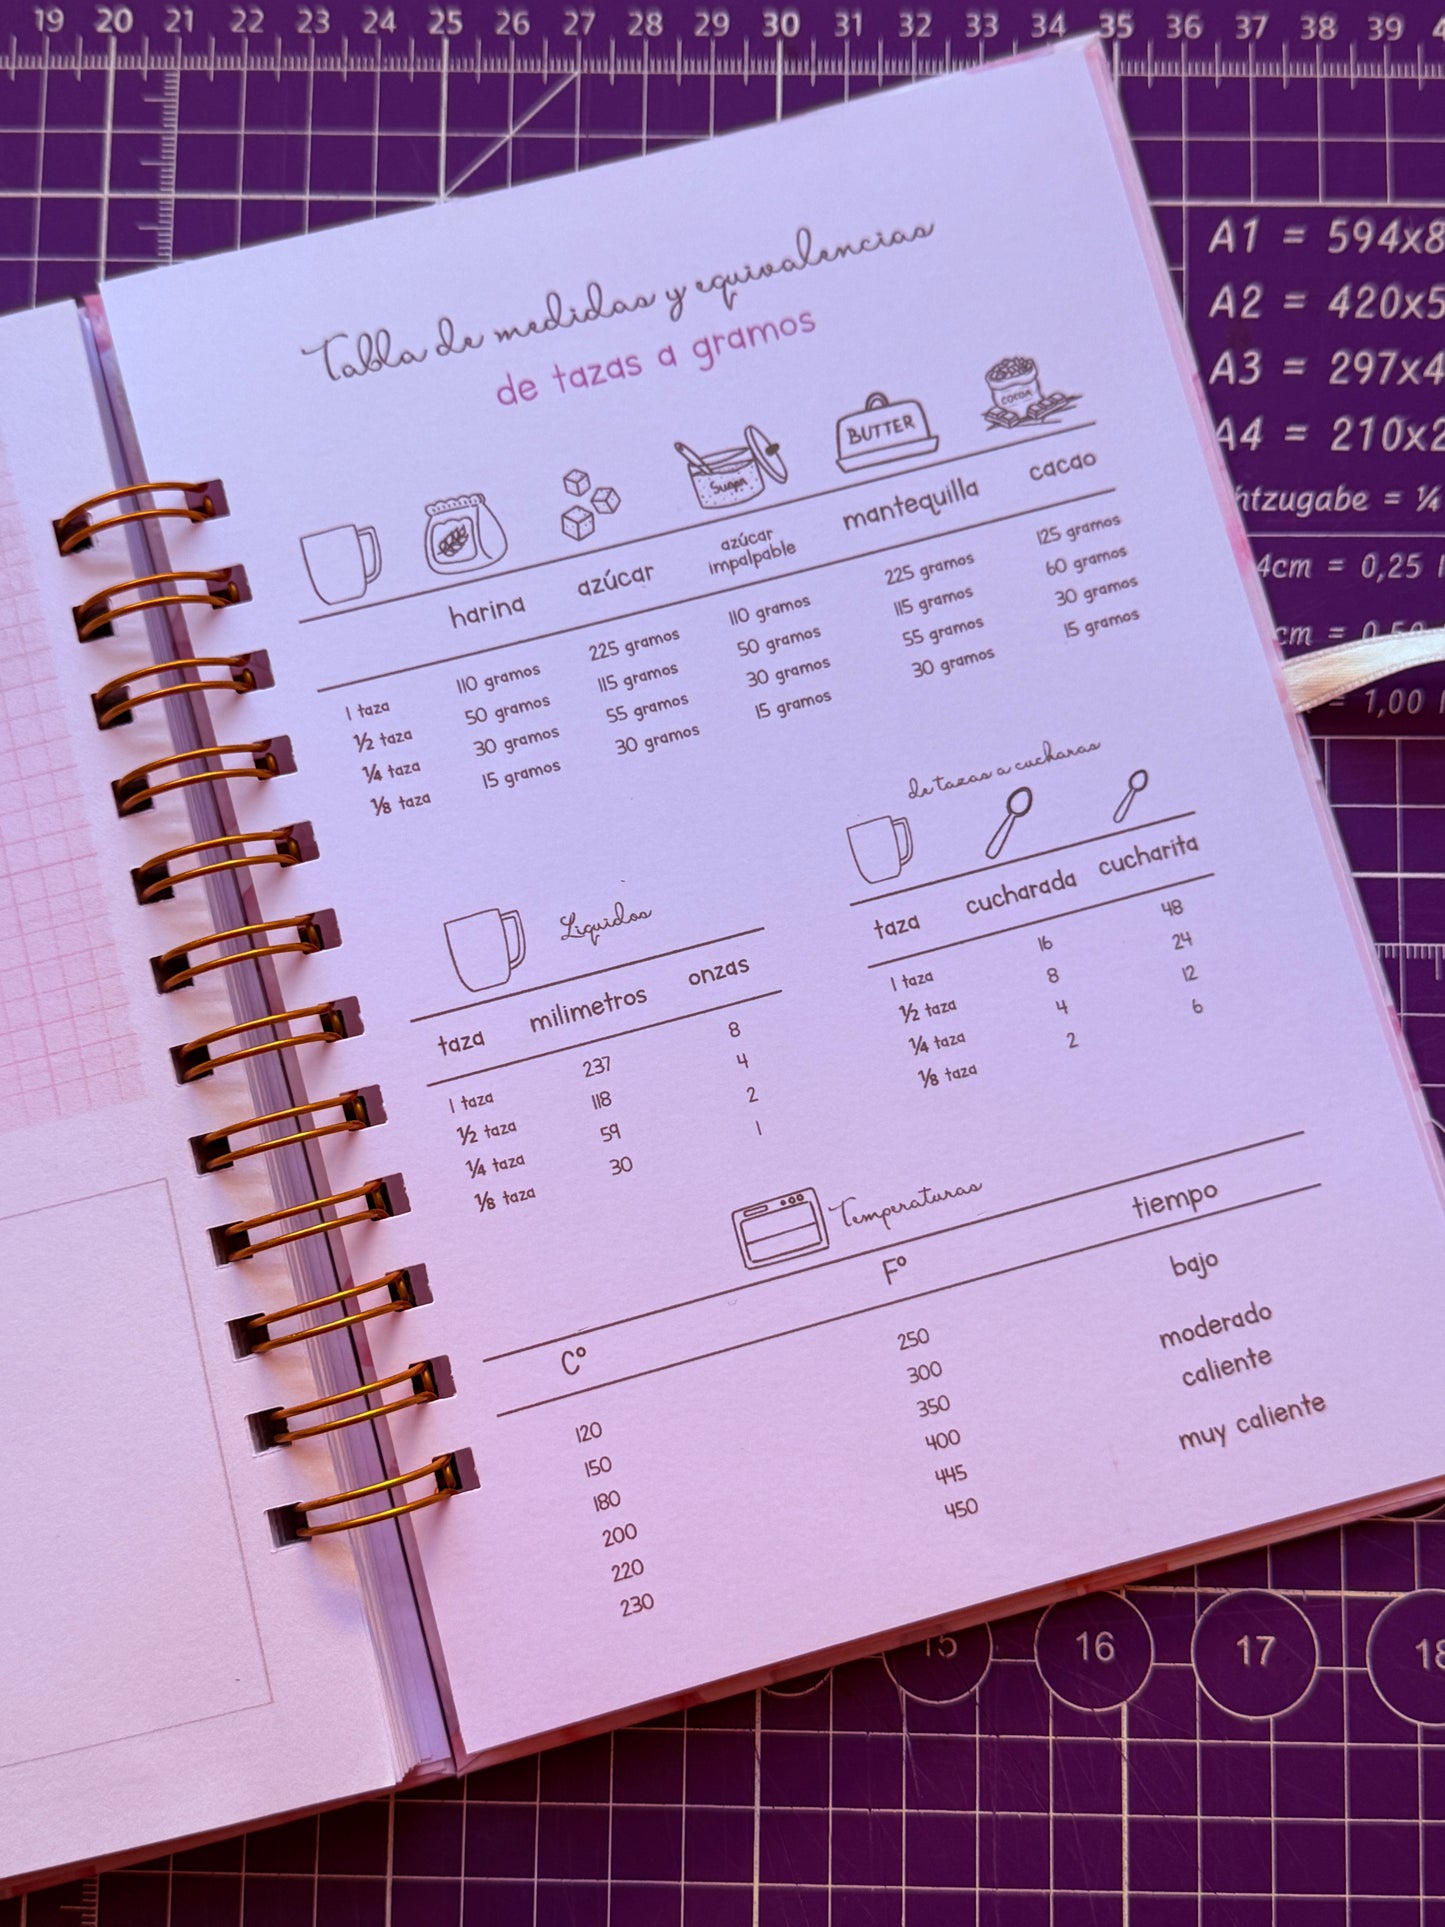 19 20 21 22 23 24 25 26 27 28 29 30 31 32 33 34 35 36 37 38 39 4
A1 = 594x8
A2 = 420x5
A3 = 297x4
A4 = 210x2
htzugabe = ¼
4cm = 0,25
cm = 0,50
= 1,00
Tabla de medidas y equivalencias
de tazas a gramos
Sugar
BUTTER
COCOA
harina azúcar azúcar impalpable mantequilla cacao
1 taza 110 gramos 225 gramos 110 gramos 225 gramos 125 gramos
1/2 taza 50 gramos 115 gramos 50 gramos 115 gramos 60 gramos
1/4 taza 30 gramos 55 gramos 30 gramos 55 gramos 30 gramos
1/8 taza 15 gramos 30 gramos 15 gramos 30 gramos 15 gramos
Liquidos
taza milimetros onzas
1 taza 237 8
1/2 taza 118 4
1/4 taza 59 2
1/8 taza 30 1
de tazas a cucharas
taza cucharada cucharita
1 taza 16 48
1/2 taza 8 24
1/4 taza 4 12
1/8 taza 2 6
Temperaturas
C° F° tiempo
120 250 bajo
150 300
180 350 moderado
200 400 caliente
220 445
230 450 muy caliente
15 16 17 18